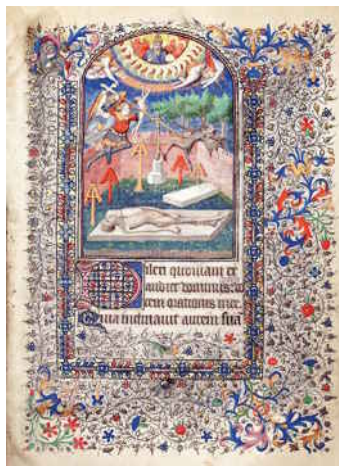 Dilexi quoniam ex
audiet dominus: vo
cem orationis mee.
Quia inclinauit aurem sua